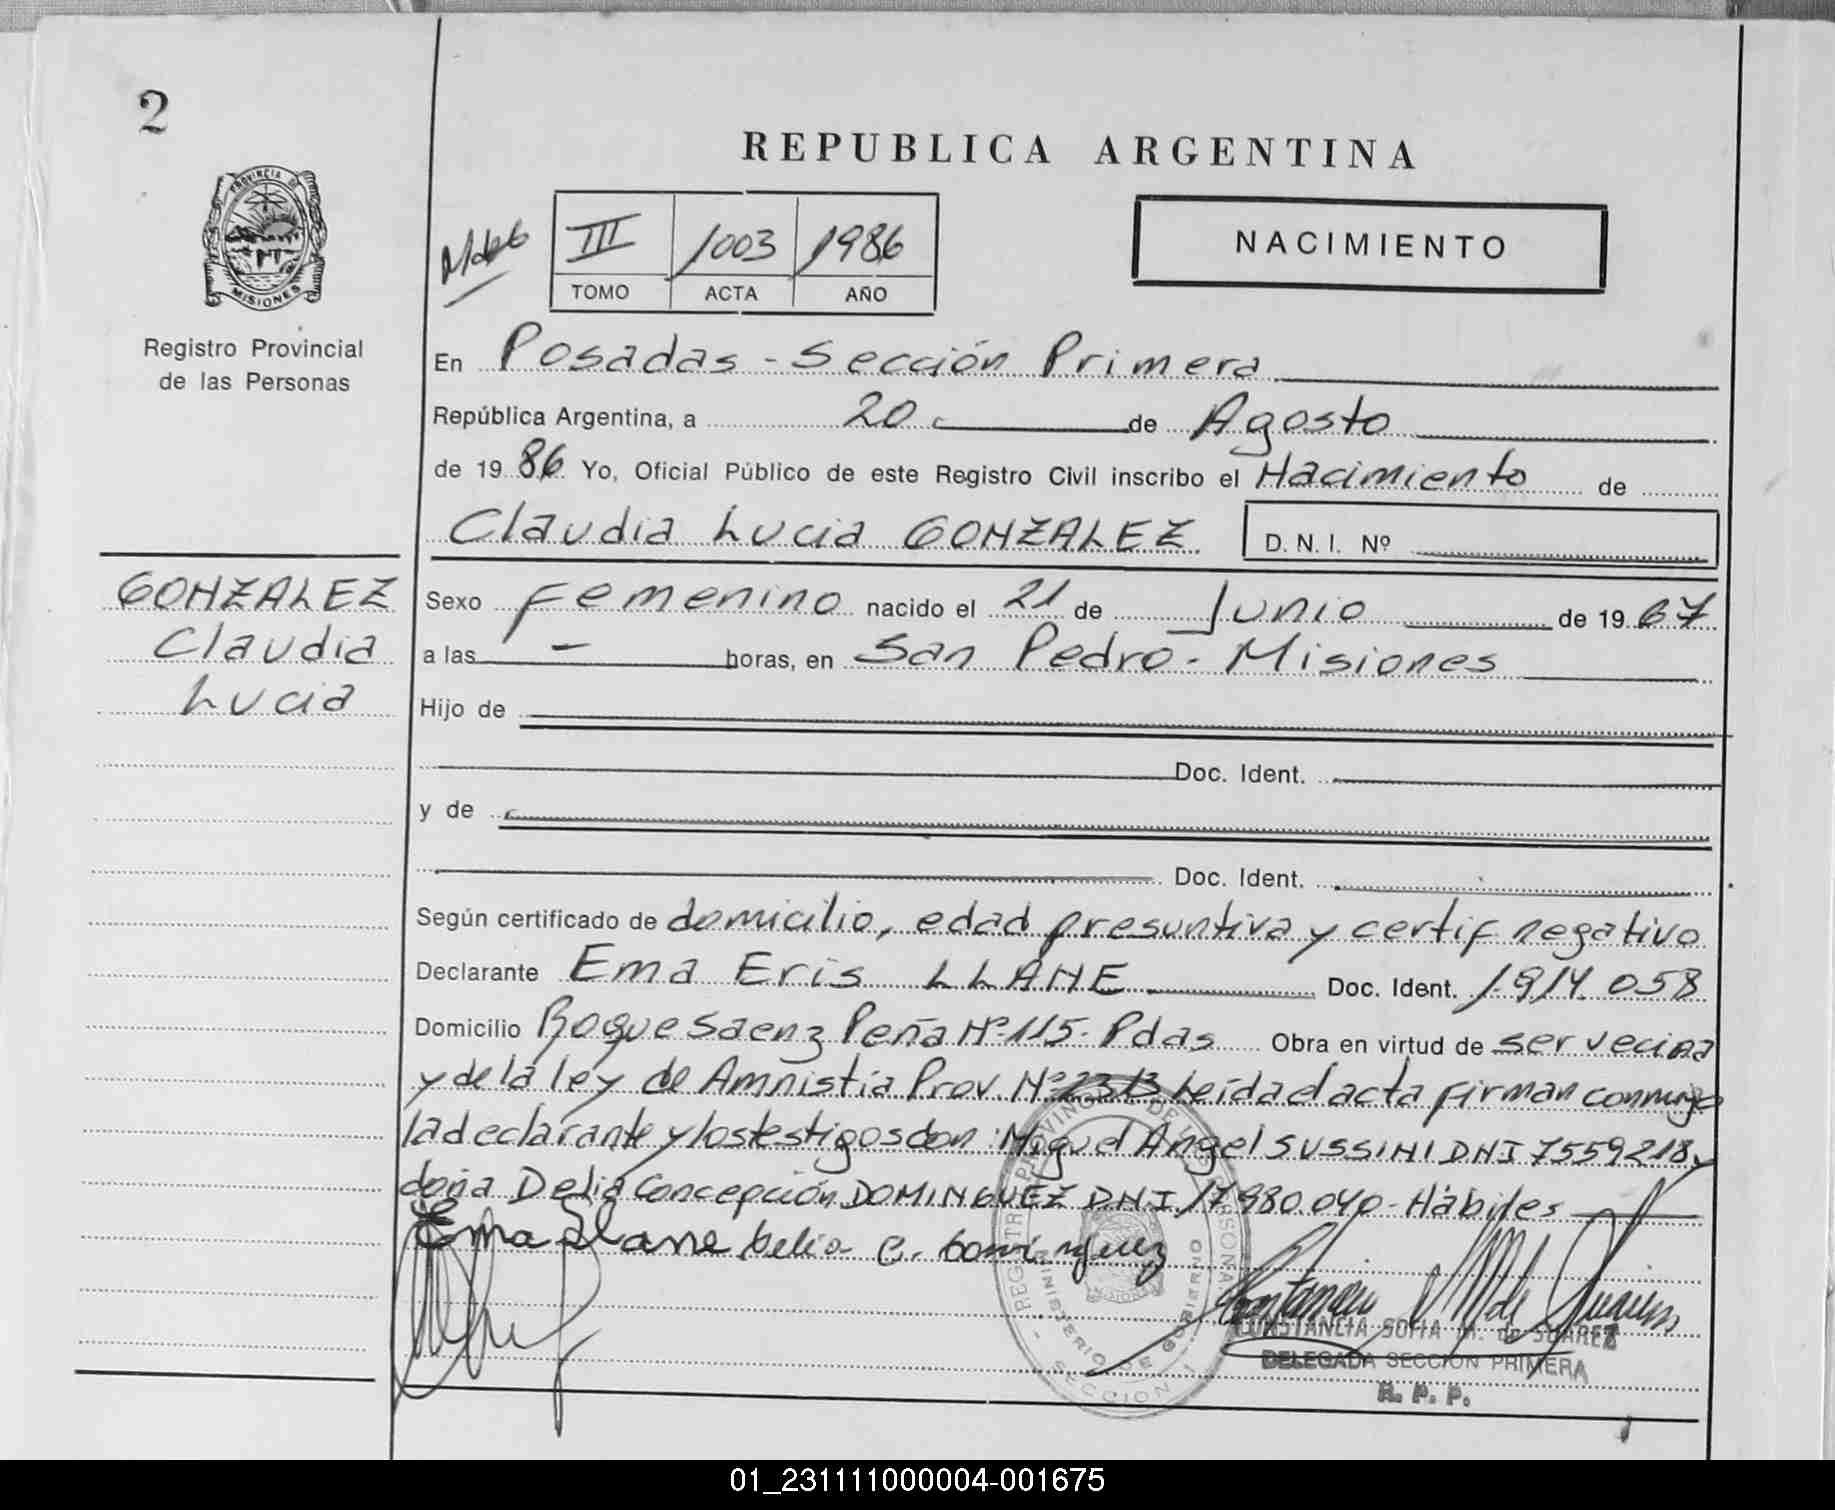 2
REPUBLICA ARGENTINA
III 1003 1986
TOMO ACTA AÑO
NACIMIENTO
PROVINCIA DE
MISIONES
Registro Provincial
de las Personas
En Posadas - Sección Primera
República Argentina, a 20 de Agosto
de 1986 Yo, Oficial Público de este Registro Civil inscribo el Nacimiento de
Claudia Lucia GONZALEZ D. N. I. Nº
GONZALEZ
Claudia
Lucia
Sexo Femenino nacido el 21 de Junio de 1967
a las - horas, en San Pedro - Misiones
Hijo de
Doc. Ident.
y de
Doc. Ident.
Según certificado de domicilio, edad presuntiva y certif negativo
Declarante Ema Eris LLANE Doc. Ident. 1.914.058
Domicilio Roque Saenz Peña Nº 115 - Pdas Obra en virtud de ser vecina
y de la ley de Amnistia Prov. Nº 2313 leída el acta firman conmigo
la declarante y los testigos don: Miguel Angel SUSSINI DNI 7559218 y
doña Delia Concepción DOMINGUEZ DNI 17980040 - Hábiles
Ema Llane Delia C. Dominguez
CONSTANCIA SOFIA M. de SUAREZ
DELEGADA SECCION PRIMERA
R. P. P.
REGISTRO PROVINCIAL DE LAS PERSONAS
MINISTERIO DE GOBIERNO
SECCION I
01_231111000004-001675